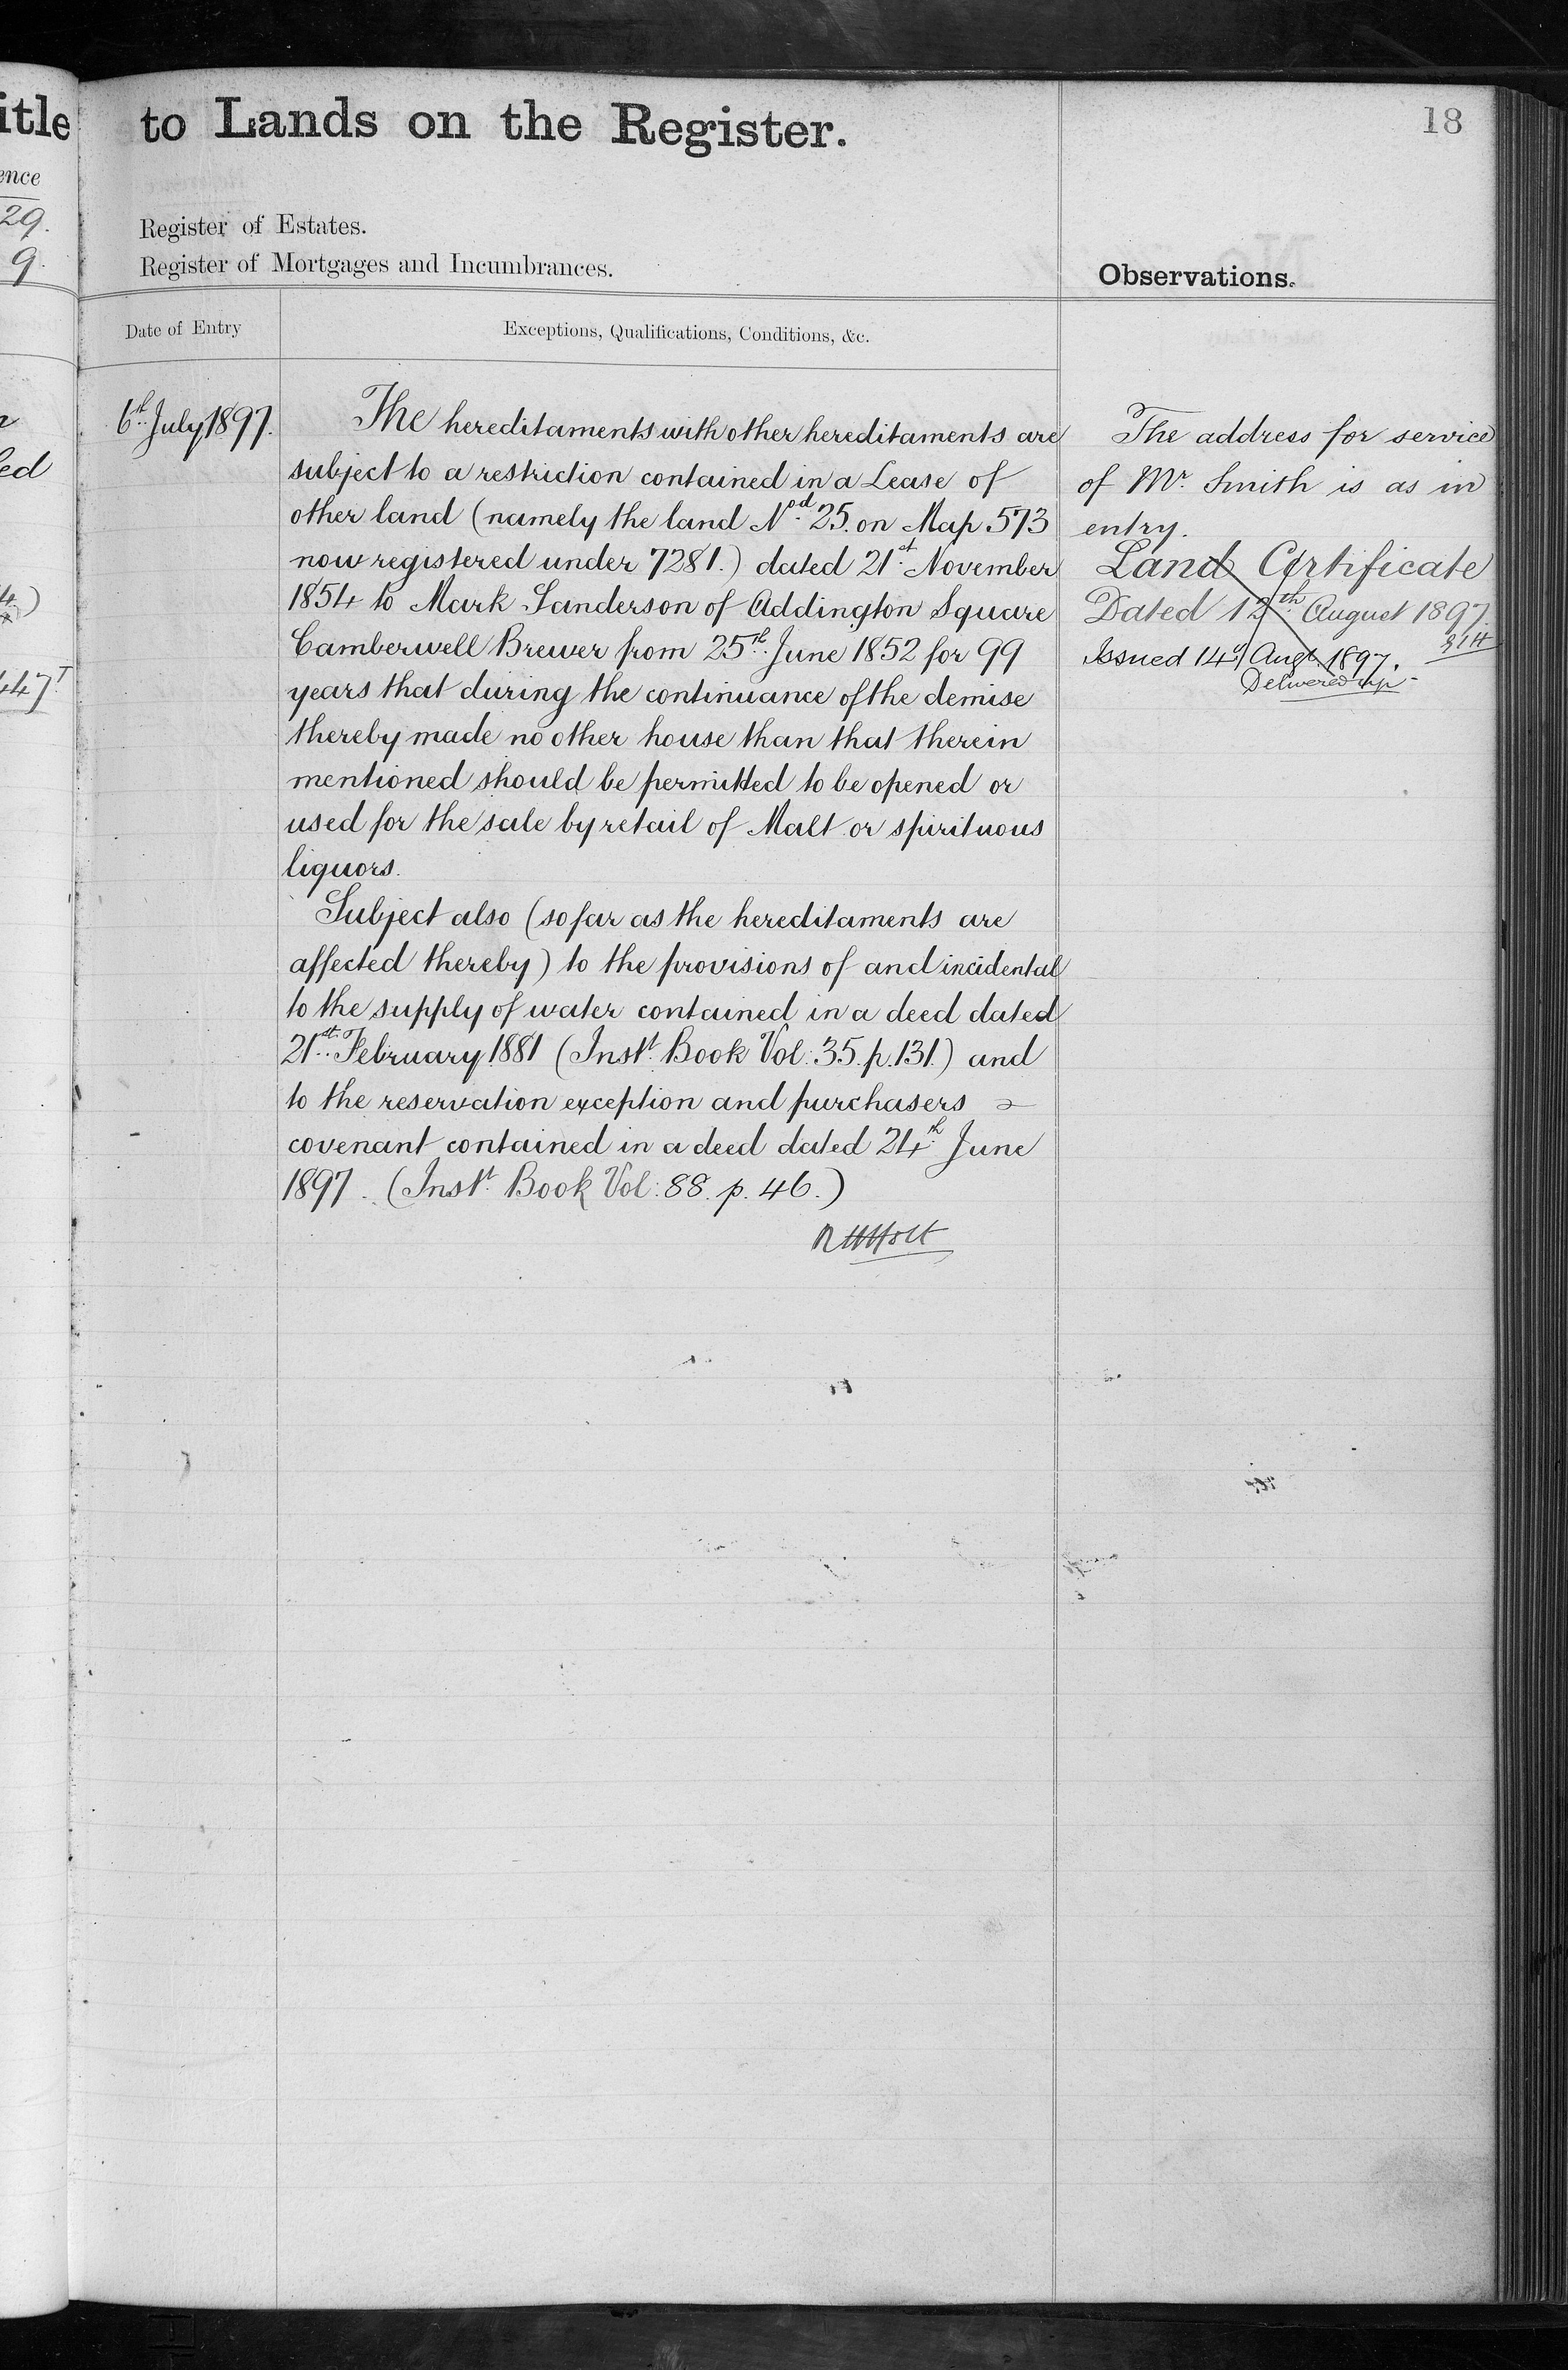 itle
ence
29.
9.
ed
447
to Lands on the Register.
18
Register of Estates.
Register of Mortgages and Incumbrances.
Observations.
Date of Entry
Exceptions, Qualifications, Conditions, &c.
6th July 1897.
The hereditaments with other hereditaments are
subject to a restriction contained in a Lease of
other land (namely the land Nod 25. on Map 573
now registered under 7281.) dated 21st November
1854 to Mark Sanderson of Addington Square
Camberwell Brewer from 25th June 1852 for 99
years that during the continuance of the demise
thereby made no other house than that therein
mentioned should be permitted to be opened or
used for the sale by retail of Malt or spirituous
liquors.
Subject also (so far as the hereditaments are
affected thereby) to the provisions of and incidental
to the supply of water contained in a deed dated
21st February 1881 (Inst. Book Vol: 35. p. 131.) and
to the reservation exception and purchasers
covenant contained in a deed dated 24th June
1897. (Inst. Book Vol: 88. p. 46.)
The address for service
of Mr. Smith is as in
entry.
Land Certificate
Dated 12th August 1897.
Issued 14th Augt. 1897.
Delivered up